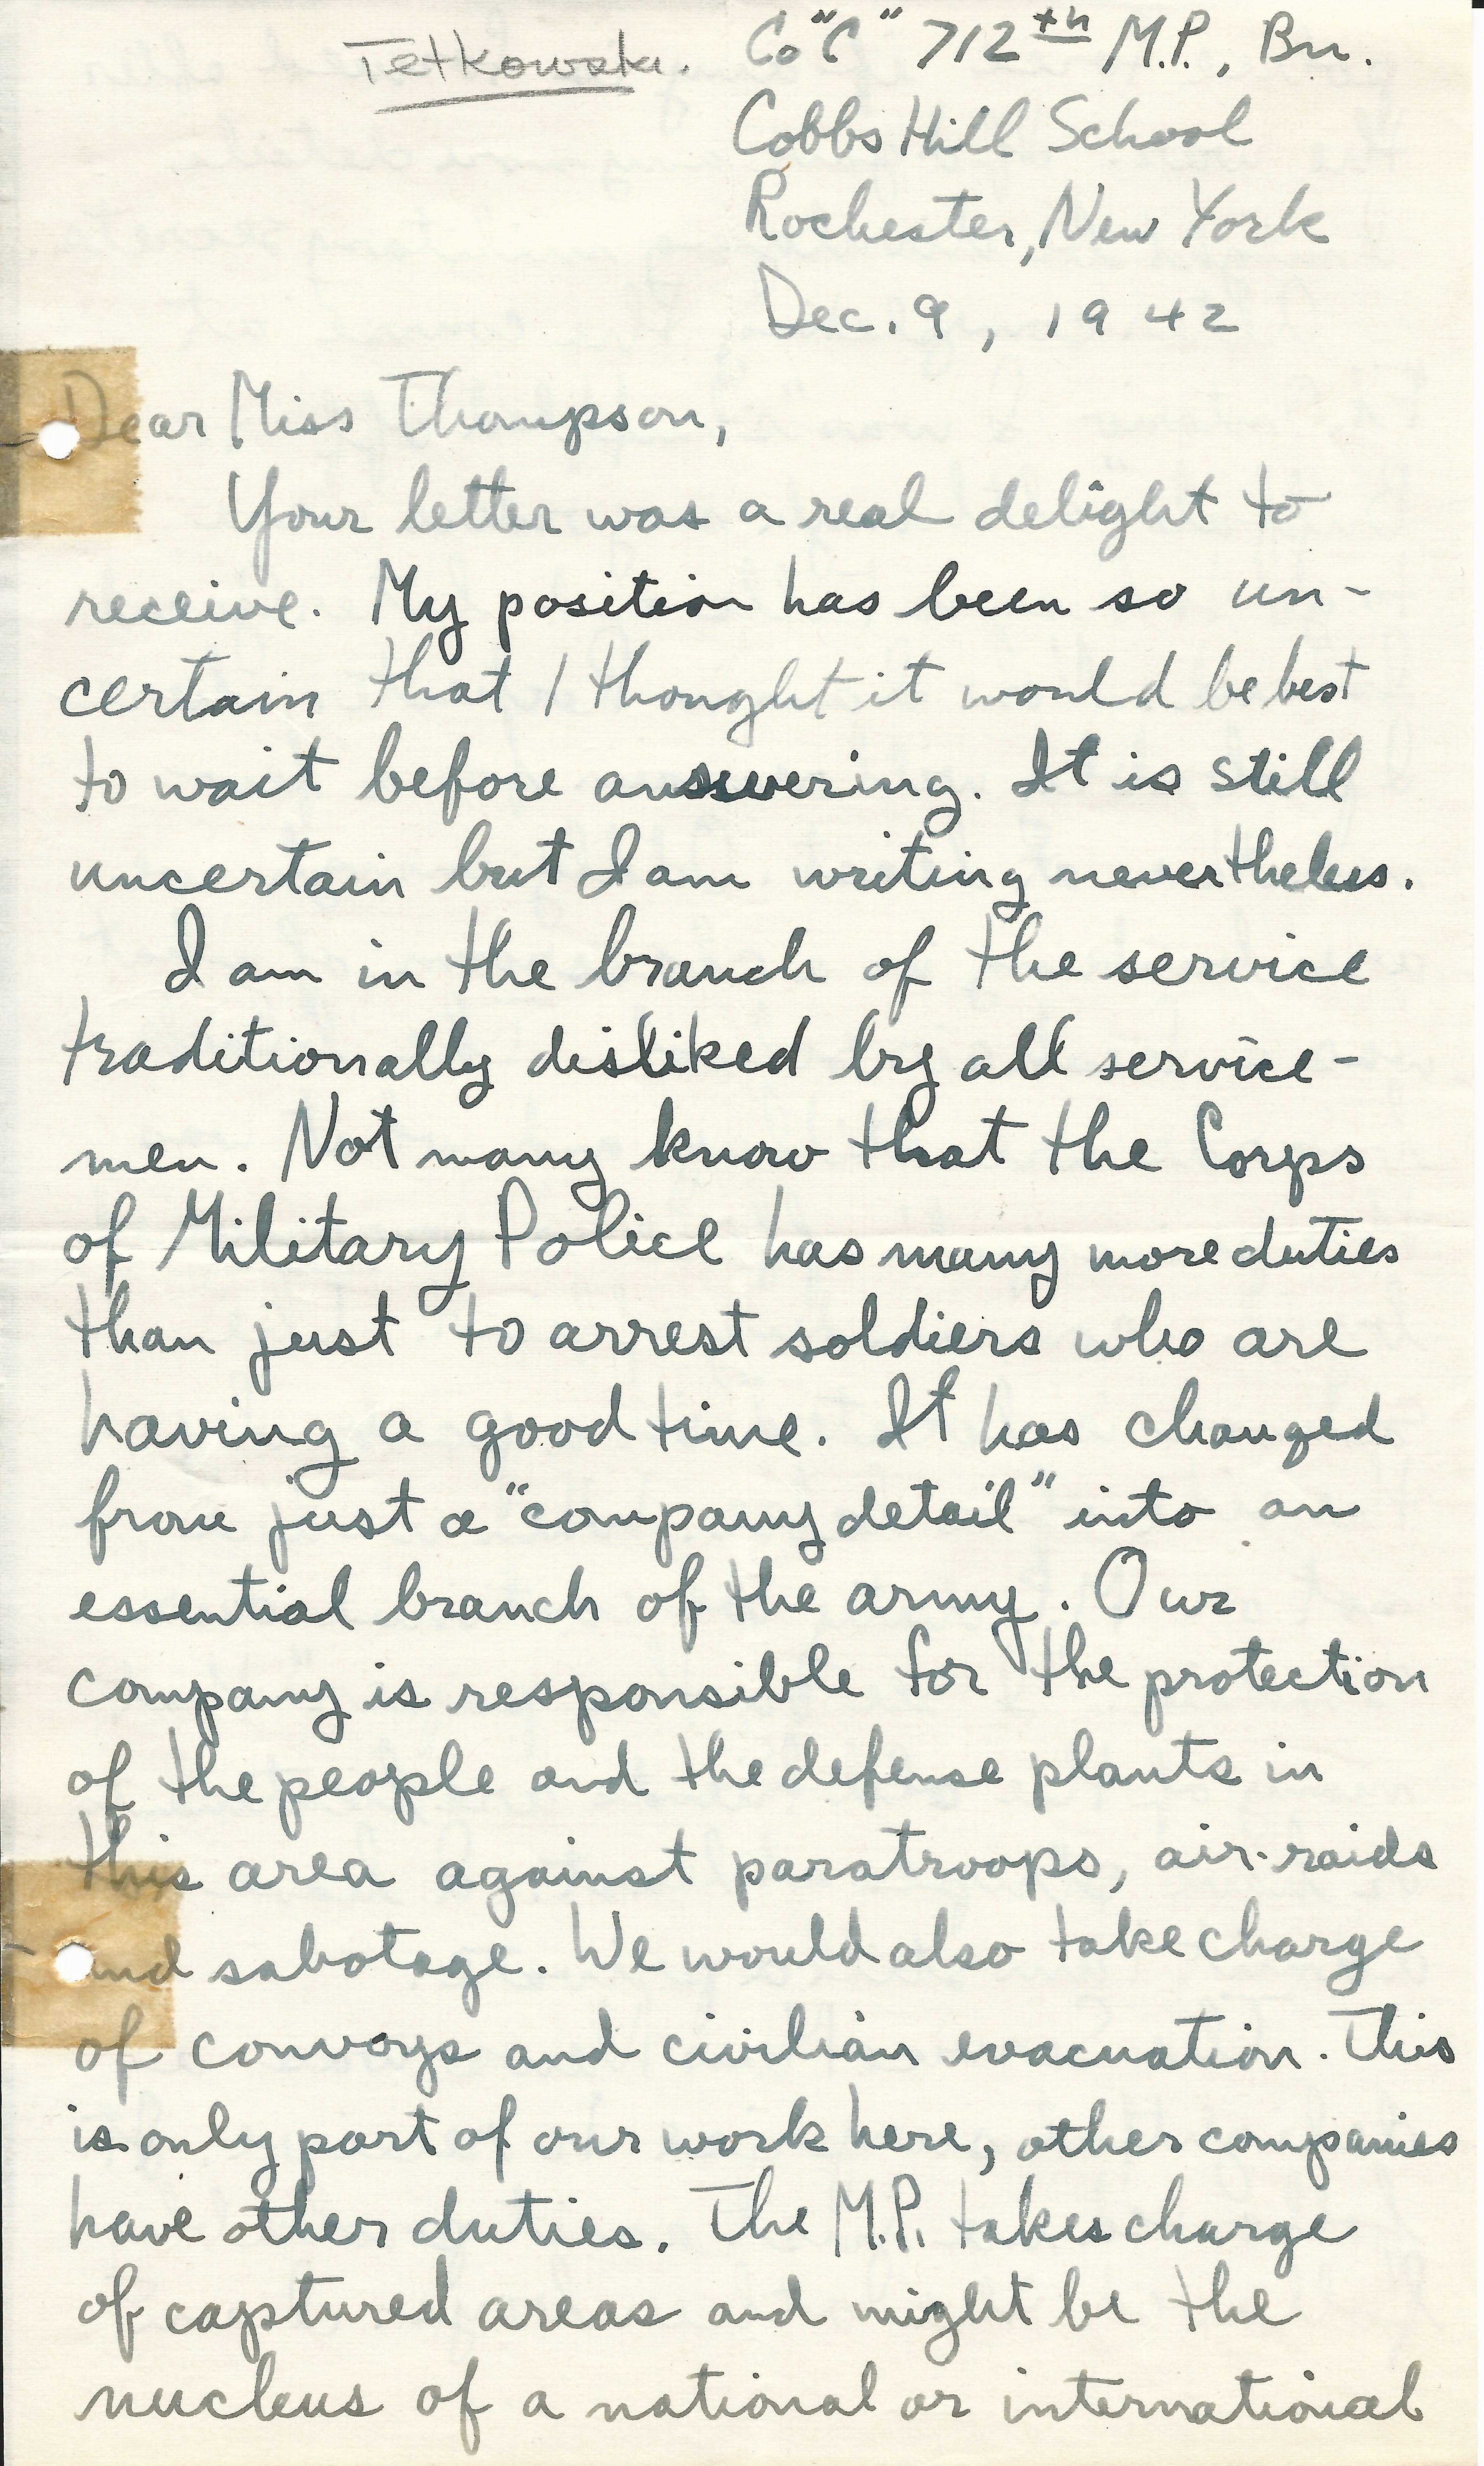 Tetkowski. Co "C" 712th M.P., Bn.
Cobbs Hill School
Rochester, New York
Dec. 9, 1942
Dear Miss Thompson,
Your letter was a real delight to
receive. My position has been so un-
certain that I thought it would be best
to wait before answering. It is still
uncertain but I am writing nevertheless.
I am in the branch of the service
traditionally disliked by all service-
men. Not many know that the Corps
of Military Police has many more duties
than just to arrest soldiers who are
having a good time. It has changed
from just a "company detail" into an
essential branch of the army. Our
company is responsible for the protection
of the people and the defense plants in
this area against paratroops, air-raids
and sabotage. We would also take charge
of convoys and civilian evacuation. This
is only part of our work here, other companies
have other duties. The M.P. takes charge
of captured areas and might be the
nucleus of a national or international